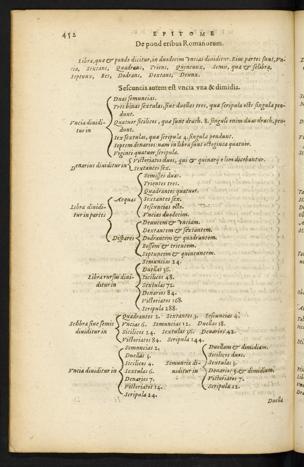 452 EPITOME
De ponderibus Romanorum.
Libra, quæ & pondo dicitur, in duodecim vncias diuiditur. Eius partes sunt, vn-
cia, Sextans, Quadrans, Triens, Quincunx, Semis, quæ & selibra,
Septunx, Bes, Dodrans, Dextans, Deunx.
Sescuncia autem est vncia vna & dimidia.
Vncia diuidi-
tur in
Duas semuncias.
Tres binas sextulas, siue duellas tres, quæ scripula octo singulæ pen-
dunt.
Quatuor sicilicos, quæ sunt drach. 8. singuli enim duas drach. pen-
dunt.
Sex sextulas, quæ scripula 4. singulæ pendunt.
Septem denarios nam in libra sunt octoginta quatuor.
Viginti quatuor scripula.
Denarius diuiditur in
Victoriatos duos, qui & quinarij olim dicebantur.
Sextantes sex.
Libra diuidi-
tur in partes
Æquas
Semisses duos.
Trientes tres.
Quadrantes quatuor.
Sextantes sex.
Sescuncias octo.
Vncias duodecim.
Dispares
Deuncem & vnciam.
Dextantem & sextantem.
Dodrantem & quadrantem.
Bessem & trientem.
Septuncem & quincuncem.
Libra rursum diui-
ditur in
Semuncias 24.
Duellas 36.
Sicilicos 48.
Sextulas 72.
Denarios 84.
Victoriatos 168.
Scripula 288.
Selibra siue semis
diuiditur in
Quadrantes 2. Sextantes 3. Sescuncias 4.
Vncias 6. Semuncias 12. Duellas 18.
Sicilicos 24. Sextulas 36. Denarios 42.
Victoriatos 84. Scripula 144.
Vncia diuiditur in
Semuncias 2.
Duellas 3.
Sicilicos 4.
Sextulas 6.
Denarios 7.
Victoriatos 14.
Scripula 24.
Semuncia di-
uiditur in
Duellam & dimidiam.
Sicilicos duos.
Sextulas 3.
Denarios 3. & dimidium.
Victoriatos 7.
Scripula 12.
Duella